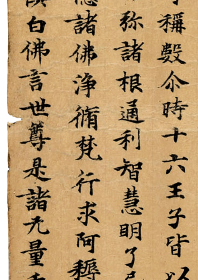 稱數尒時十六王子皆
弥諸根通利智慧明了
諸佛淨脩梵行求阿耨
白佛言世尊是諸无量